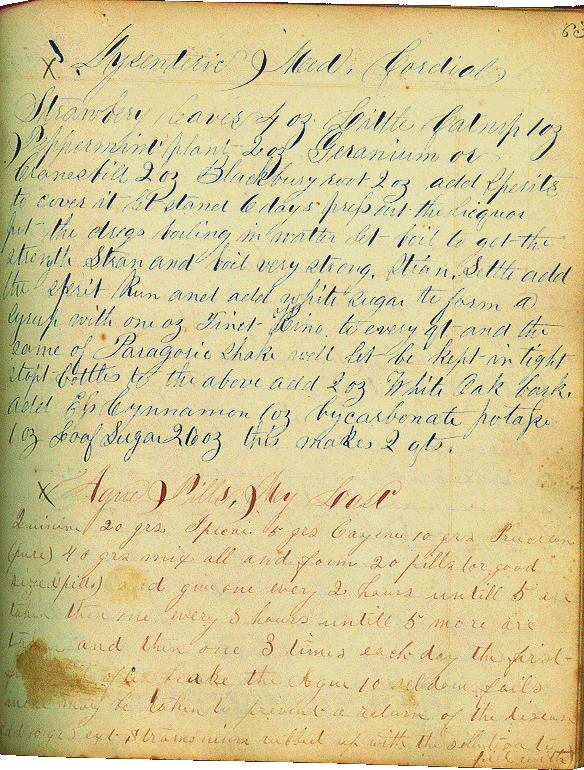 63
X Dysenteric Med. Cordial
Strawbery leaves 4 oz Little Catnip 1oz
Peppermint plant 2oz Geranium or
Cranesbill 2 oz Blackbury root 2 oz add Sperits
to cover it let stand 6 days press out the licquor
put the dregs boiling in watter let boil to get the
strength Stran and boil very strong. Stran. Settle add
the sperit Run and add white sugar to form a
syrup with one oz Tinct Kino to every qt and the
same of Paragoric shake well let be kept in tight
stopt bottles to the above add 2 oz White Oak bark.
add Cynnamon 1oz bycarbonate potash
1oz Loaf Sugar 20oz this makes 2 qts.
X Ague Pills, My
Quinine 20 grs Ipicac 5 grs Cayene 10 grs
(pure) 40 grs mix all and form 20 pills (or good
sized pills) and give one every 2 hours untill 5 are
taken then one every 3 hours untill 5 more are
taken and then one 3 times each day the first
the Ague 10 seldom fails
may be taken to prevent a return of the disease
10 grs ext Stramonium rubbed up with the solution to